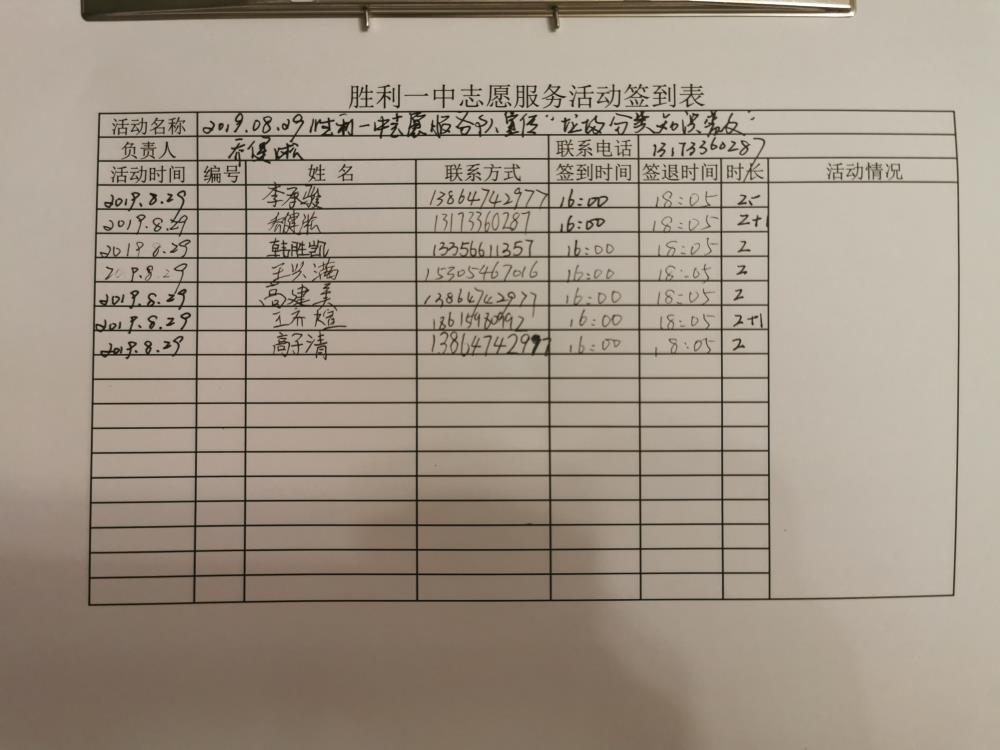 胜利一中志愿服务活动签到表
活动名称 2019.08.29胜利一中志愿服务队宣传"垃圾分类知识
负责人 乔健 联系电话 13173360287
活动时间 编号 姓名 联系方式 签到时间 签退时间 时长 活动情况
2019.8.29 李承骏 13864742977 16:00 18:05 2
2019.8.29 乔健 13173360287 16:00 18:05 2+1
2019 8.29 韩胜凯 13356611357 16:00 18:05 2
2019.8.29 王兴满 15305467016 16:00 18:05 2
2019.8.29 高建美 13864742977 16:00 18:05 2
2019.8.29 王亦煊 16:00 18:05 2+1
2019.8.29 高子清 13864742977 16:00 18:05 2